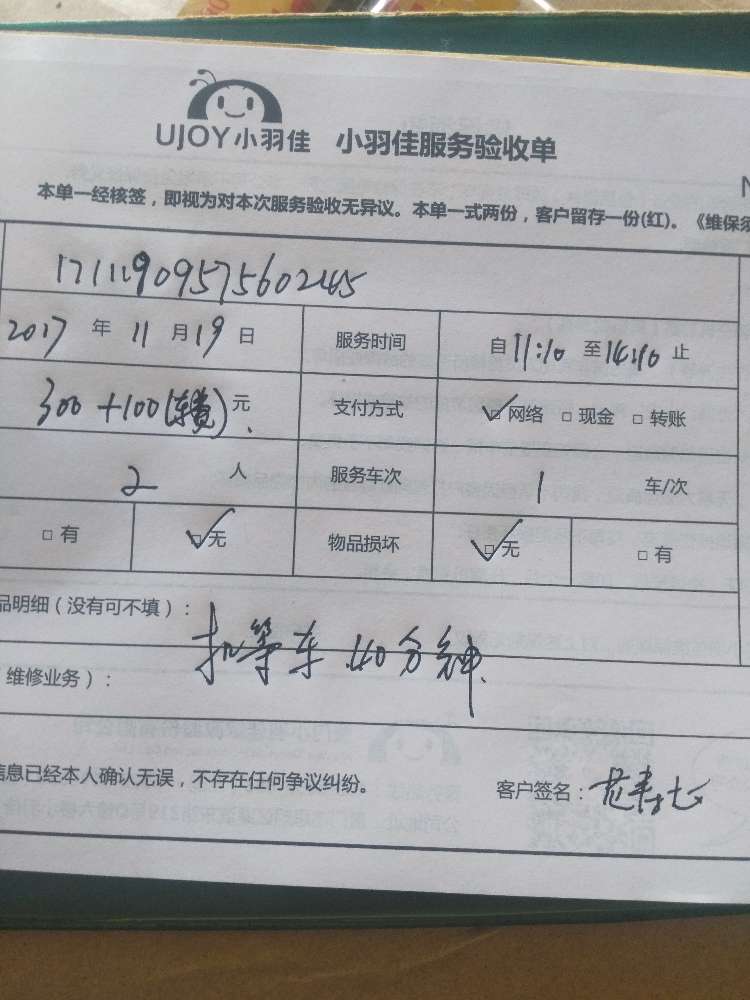 UJOY小羽佳 小羽佳服务验收单
本单一经核签，即视为对本次服务验收无异议。本单一式两份，客户留存一份(红)。《维保须
17111909575602445
2017 年 11 月 19 日 服务时间 自 11:10 至 14:10 止
300+100(车费) 元 支付方式 ☑ 网络 □ 现金 □ 转账
2 人 服务车次 1 车/次
□ 有 ☑ 无 物品损坏 ☑ 无 □ 有
品明细（没有可不填）：
扣等车 40分钟.
维修业务）：
信息已经本人确认无误，不存在任何争议纠纷。 客户签名：